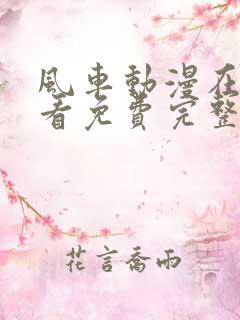 風車動漫在
看免費完整
花言喬雨